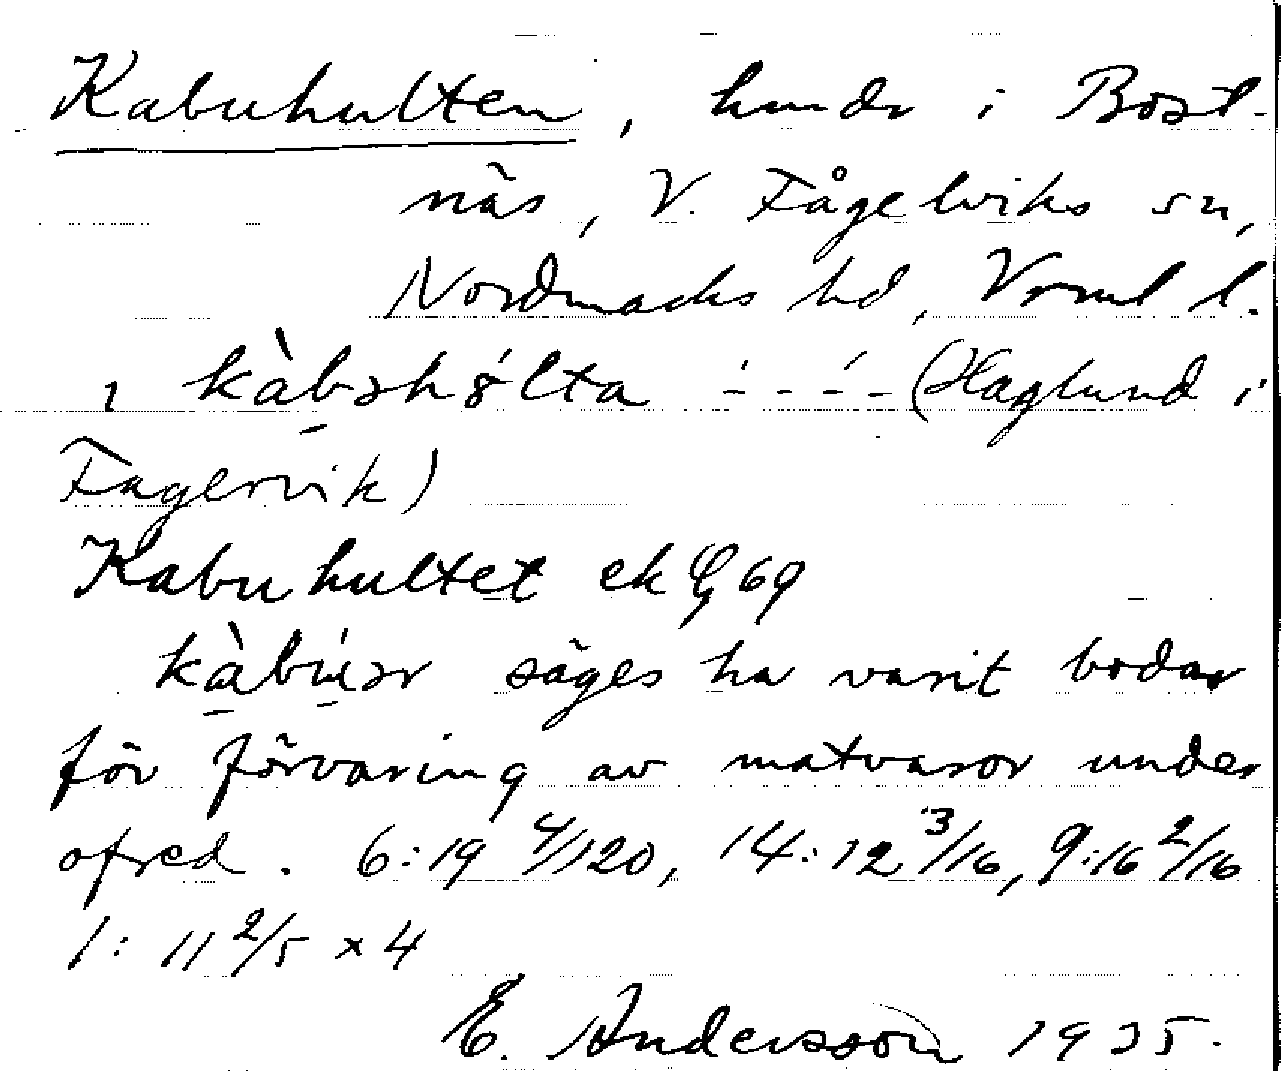 Kabuhulten, hmdr i Bost-
näs, V. Fågelviks sn,
Nordmarks hd, Vrml l.
ɿ kàbəhɵ́lta -́ - -́ - (Haglund i
Fagervik)
Kabuhultet ek 69
kàbúər säges ha varit bodar
för förvaring av matvaror under
ofred. 6:19 4/120, 14:12 3/16, 9:16 2/16
1:11 2/5 x 4
E. Andersson 1935.